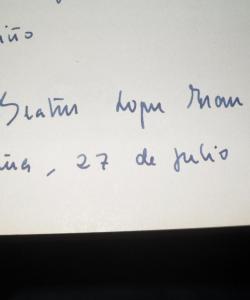 iño
Beatriz Lopez
ña, 27 de julio